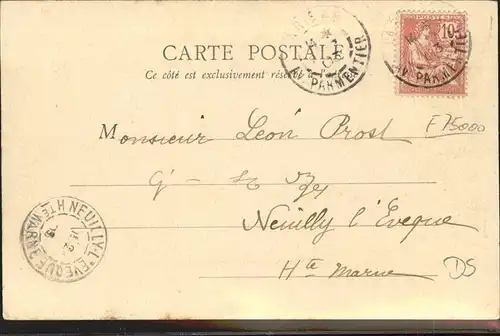 CARTE POSTALE
Ce côté est exclusivement réservé
AV. PARMENTIER
POSTES
10
AV. PARMENTIER
Monsieur Léon Prost
F75000
Neuilly l'Eveque
Hte Marne
DS
NEUILLY-L'EVEQUE
Hte MARNE